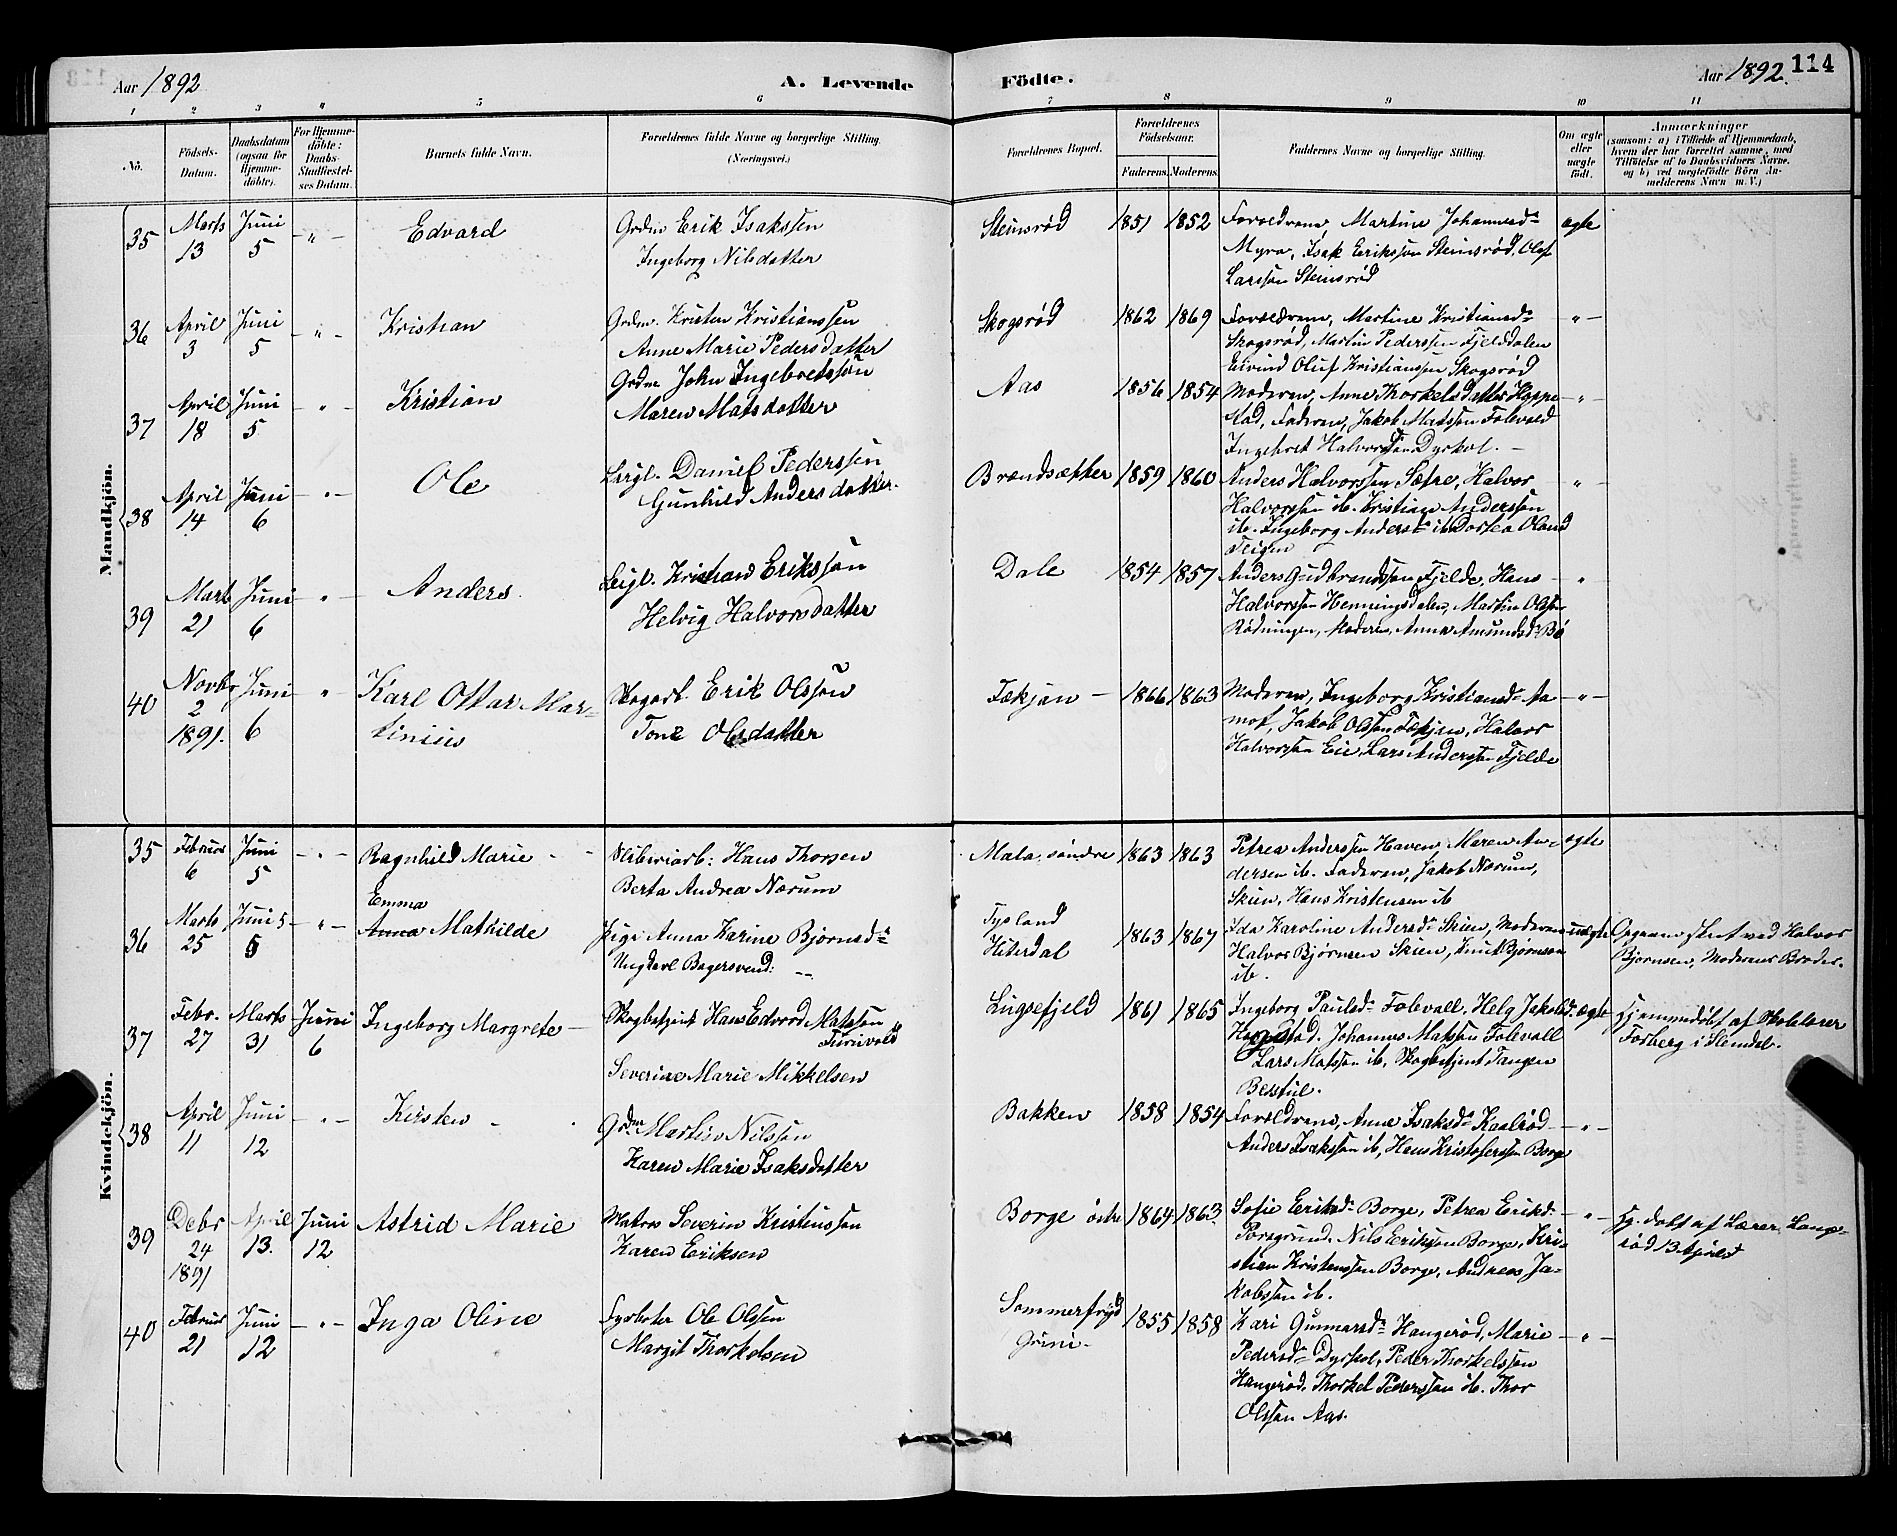 Aar 1892.
A. Levende Födte.
Aar 1892.
114
1 2 3 4 5 6 7 8 9 10 11
No.
Födsels-Datum.
Daabsdatum (ogsaa for Hjemmedöbte).
For Hjemmedöbte: Daabs-Stadfæstelses Datum.
Barnets fulde Navn.
Forældrenes fulde Navne og borgerlige Stilling. (Næringsvei.)
Forældrenes Bopæl.
Forældrenes Födselsaar.
Faderens. Moderens.
Faddernes Navne og borgerlige Stilling.
Om ægte eller uægte födt.
Anmærkninger
(saasom: a) i Tilfælde af Hjemmedaab, hvem der har forrettet samme, med Tilföielse af to Daabsvidners Navne. og b) ved uægtefödte Börn Anmelderens Navn m. V.)
Mandkjön.
35 Marts 13 Juni 5 - " - Edvard
Grdm Erik Isakssøn
Ingeborg Nilsdatter
Steinsrød 1851 1852
Forældrene, Martine Johannesd.
Myra, Isak Erikssøn Steinsrød, Olef
Larssøn Steinsrød
ægte
36 April 3 Juni 5 - " - Kristian
Grdm. Kristen Kristianssøn
Anne Marie Pedersdatter
Skogsrød 1862 1869
Forældrene, Martine Kristiansd.
Skogsrød, Martin Pederssøn Fjelddalen
Eivind Oluf Kristianssøn Skogsrød
- " -
37 April 18 Juni 5 - " - Kristian
Grdm John Ingebretssøn
Maren Matsdatter
Aas 1856 1854
Moderen, Anne Thorkelsdatter Hoppe-
stad, Faderen, Jakob Matssøn Folevold
Ingebret Halvorssøn Dyrkol. -
- " -
38 April 14 Juni 6 - " - Ole
Leigl. Daniel Pederssøn
Gunhild Andersdatter.
Brændsætter 1859 1860
Anders Halvorssøn Sætre, Halvor
Halvorssøn ib. Kristian Anderssøn
ib. Ingeborg Andersd. ib. Dorthea Olausd
Teigen
- " -
39 Marts 21 Juni 6 - " - Anders
Leigl. Kristian Erikssøn
Helvig Halvorsdatter
Dale 1854 1857
Anders Gudbrandssøn Fjelde, Hans
Halvorssøn Henningsdalen, Martin Olssøn
Rødningen, Moderen, Anna Amundsd. Bø
- "
40 Novbr 2 1891. Juni 6 " Karl Ottar Mar-
tinius
Skogarb. Erik Olssøn
Tone Olsdatter
Tækjan - 1866 1863
Moderen, Ingeborg Kristiansd. Aa-
mot, Jakob Olssøn Tækjan, Halvor
Halvorssøn Eie, Lars Anderssøn Fjelde
- " -
Kvindekjön.
35 Februar 6 Juni 5 - " - Ragnhild Marie
Sliberiarb: Hans Thorsen
Berta Andrea Nærum
Mæla søndre 1863 1863
Petrea Anderssen Haven, Maren An-
dersen ib. Faderen, Jakob Nærum,
Skien, Hans Kristensen ib
ægte
36 Marts 25 Juni 5 5 - " - Emma
Anna Mathilde
Pige Anna Karine Bjørnsd.
Ungkarl Bagersvend: --
Tysland
Hiterdal 1863 1867
Ida Karoline Andersd. Skien, Moderen
Halvor Bjørnsen Skien, Knut Bjørnsen
ib.
uægte
Opgivne slut ved Halvor
Bjørnsen, Moderens Broder.
37 Febr. 27 Marts 31 Juni 6 Ingeborg Margrete -
Skogbetjent Hans Edvard Matssøn
Turivold
Severine Marie Mikkelsen
Lugsefjeld 1861 1865
Ingeborg Paulsd. Folevall, Helg Jakobsd.
Hoppestad. Johannes Matssøn Folevall
Lars Matssøn ib, Skogbetjent Tangen
Bestul.
ægte
Hjemmedøbt af Skolelærer
Forberg i Slemdal.
38 April 11 Juni 12 - " - Kirsten
Grdm Martin Nilssøn
Karen Marie Isaksdatter
Bakken 1858 1854
Forældrene, Anne Isaksd. Kaalrød
Anders Isakssøn ib, Hans Kristoferssøn Borge
- " -
39 Debr 24 1891 April 13. Juni 12 Astrid Marie
Matros Severin Kristenssøn
Karen Eriksen
Borge østre 1864 1863
Sofie Eriksd. Borge, Petrea Eriksd.
Porsgrund, Nils Erikssøn Borge, Kri-
stian Kristenssøn Borge, Andreas Ja-
kobssøn ib.
- " -
Hj. døbt af Lærer Lang-
rød 13 April
40 Februar 21 Juni 12 - " - Inga Oline
Fyrbøter Ole Olssøn
Margit Thorkelsen
Sommerfryd
Grini. 1855 1858
Kari Gunnarsd. Haugerød, Marie
Pedersd. Dyrkol, Peder Thorkelssøn
Haugerød, Thorkel Pederssøn ib. Thor
Olssøn Aas.
- " -